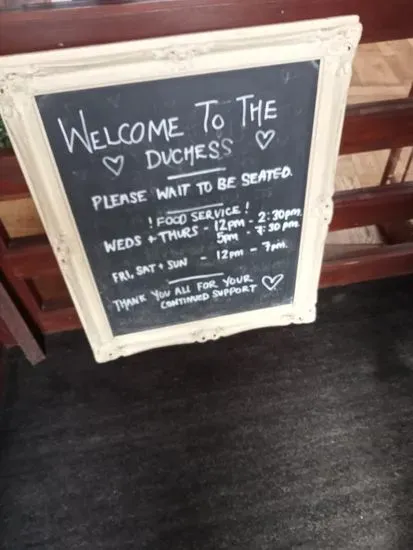 WELCOME TO THE
DUCHESS
PLEASE WAIT TO BE SEATED.
! FOOD SERVICE !
WEDS + THURS - 12pm - 2:30pm.
5pm - 7:30pm.
FRI, SAT + SUN - 12pm - 7pm.
THANK YOU ALL FOR YOUR
CONTINUED SUPPORT